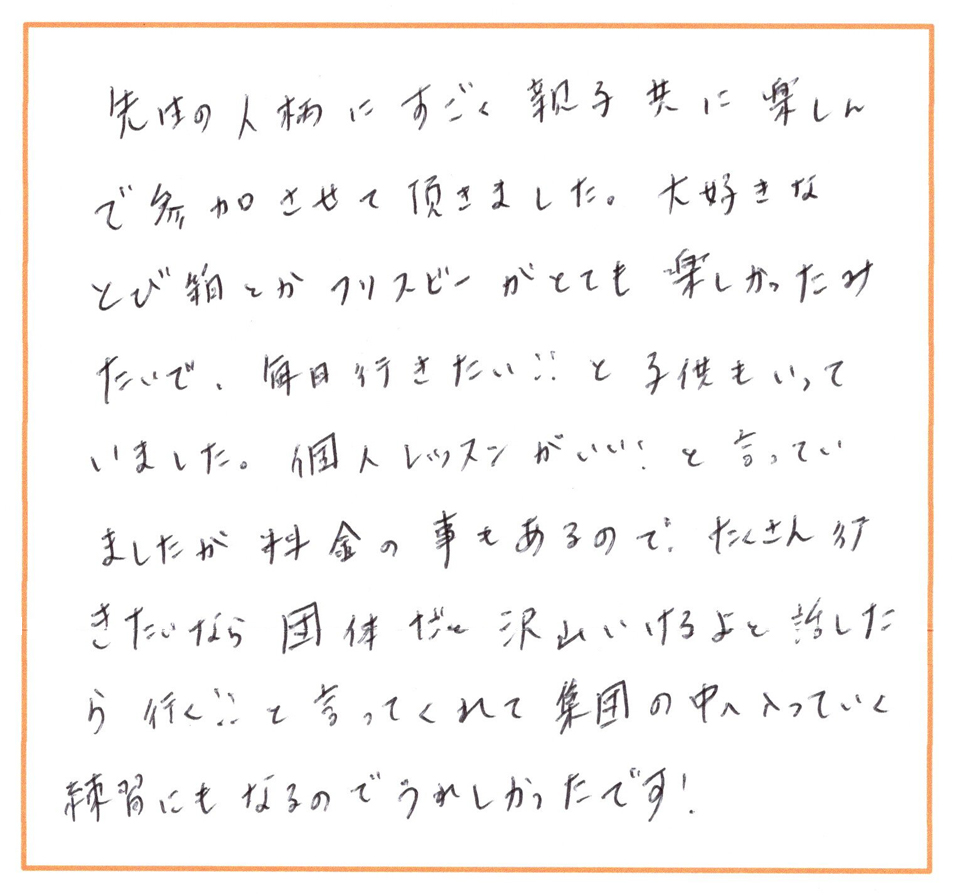 先生の人柄にすごく親子共に楽しん
で参加させて頂きました。大好きな
とび箱とかフリスビーがとても楽しかったみ
たいで、毎日行きたい!!と子供もいって
いました。個人レッスンがいい!と言ってい
ましたが料金の事もあるので、たくさん行
きたいなら団体だと沢山いけるよと話した
ら行く!!と言ってくれて集団の中へ入っていく
練習にもなるのでうれしかったです!